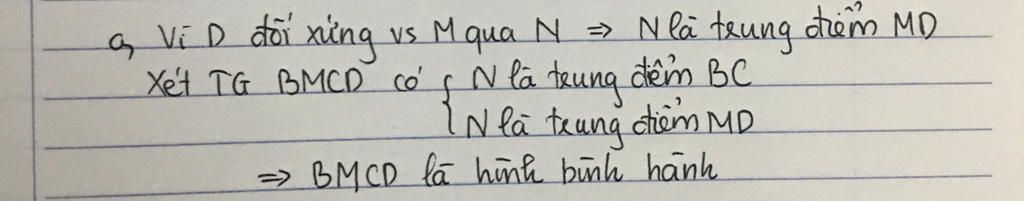 a, Vì D đối xứng vs M qua N => N là trung điểm MD
Xét TG BMCD có { N là trung điểm BC
N là trung điểm MD
=> BMCD là hình bình hành